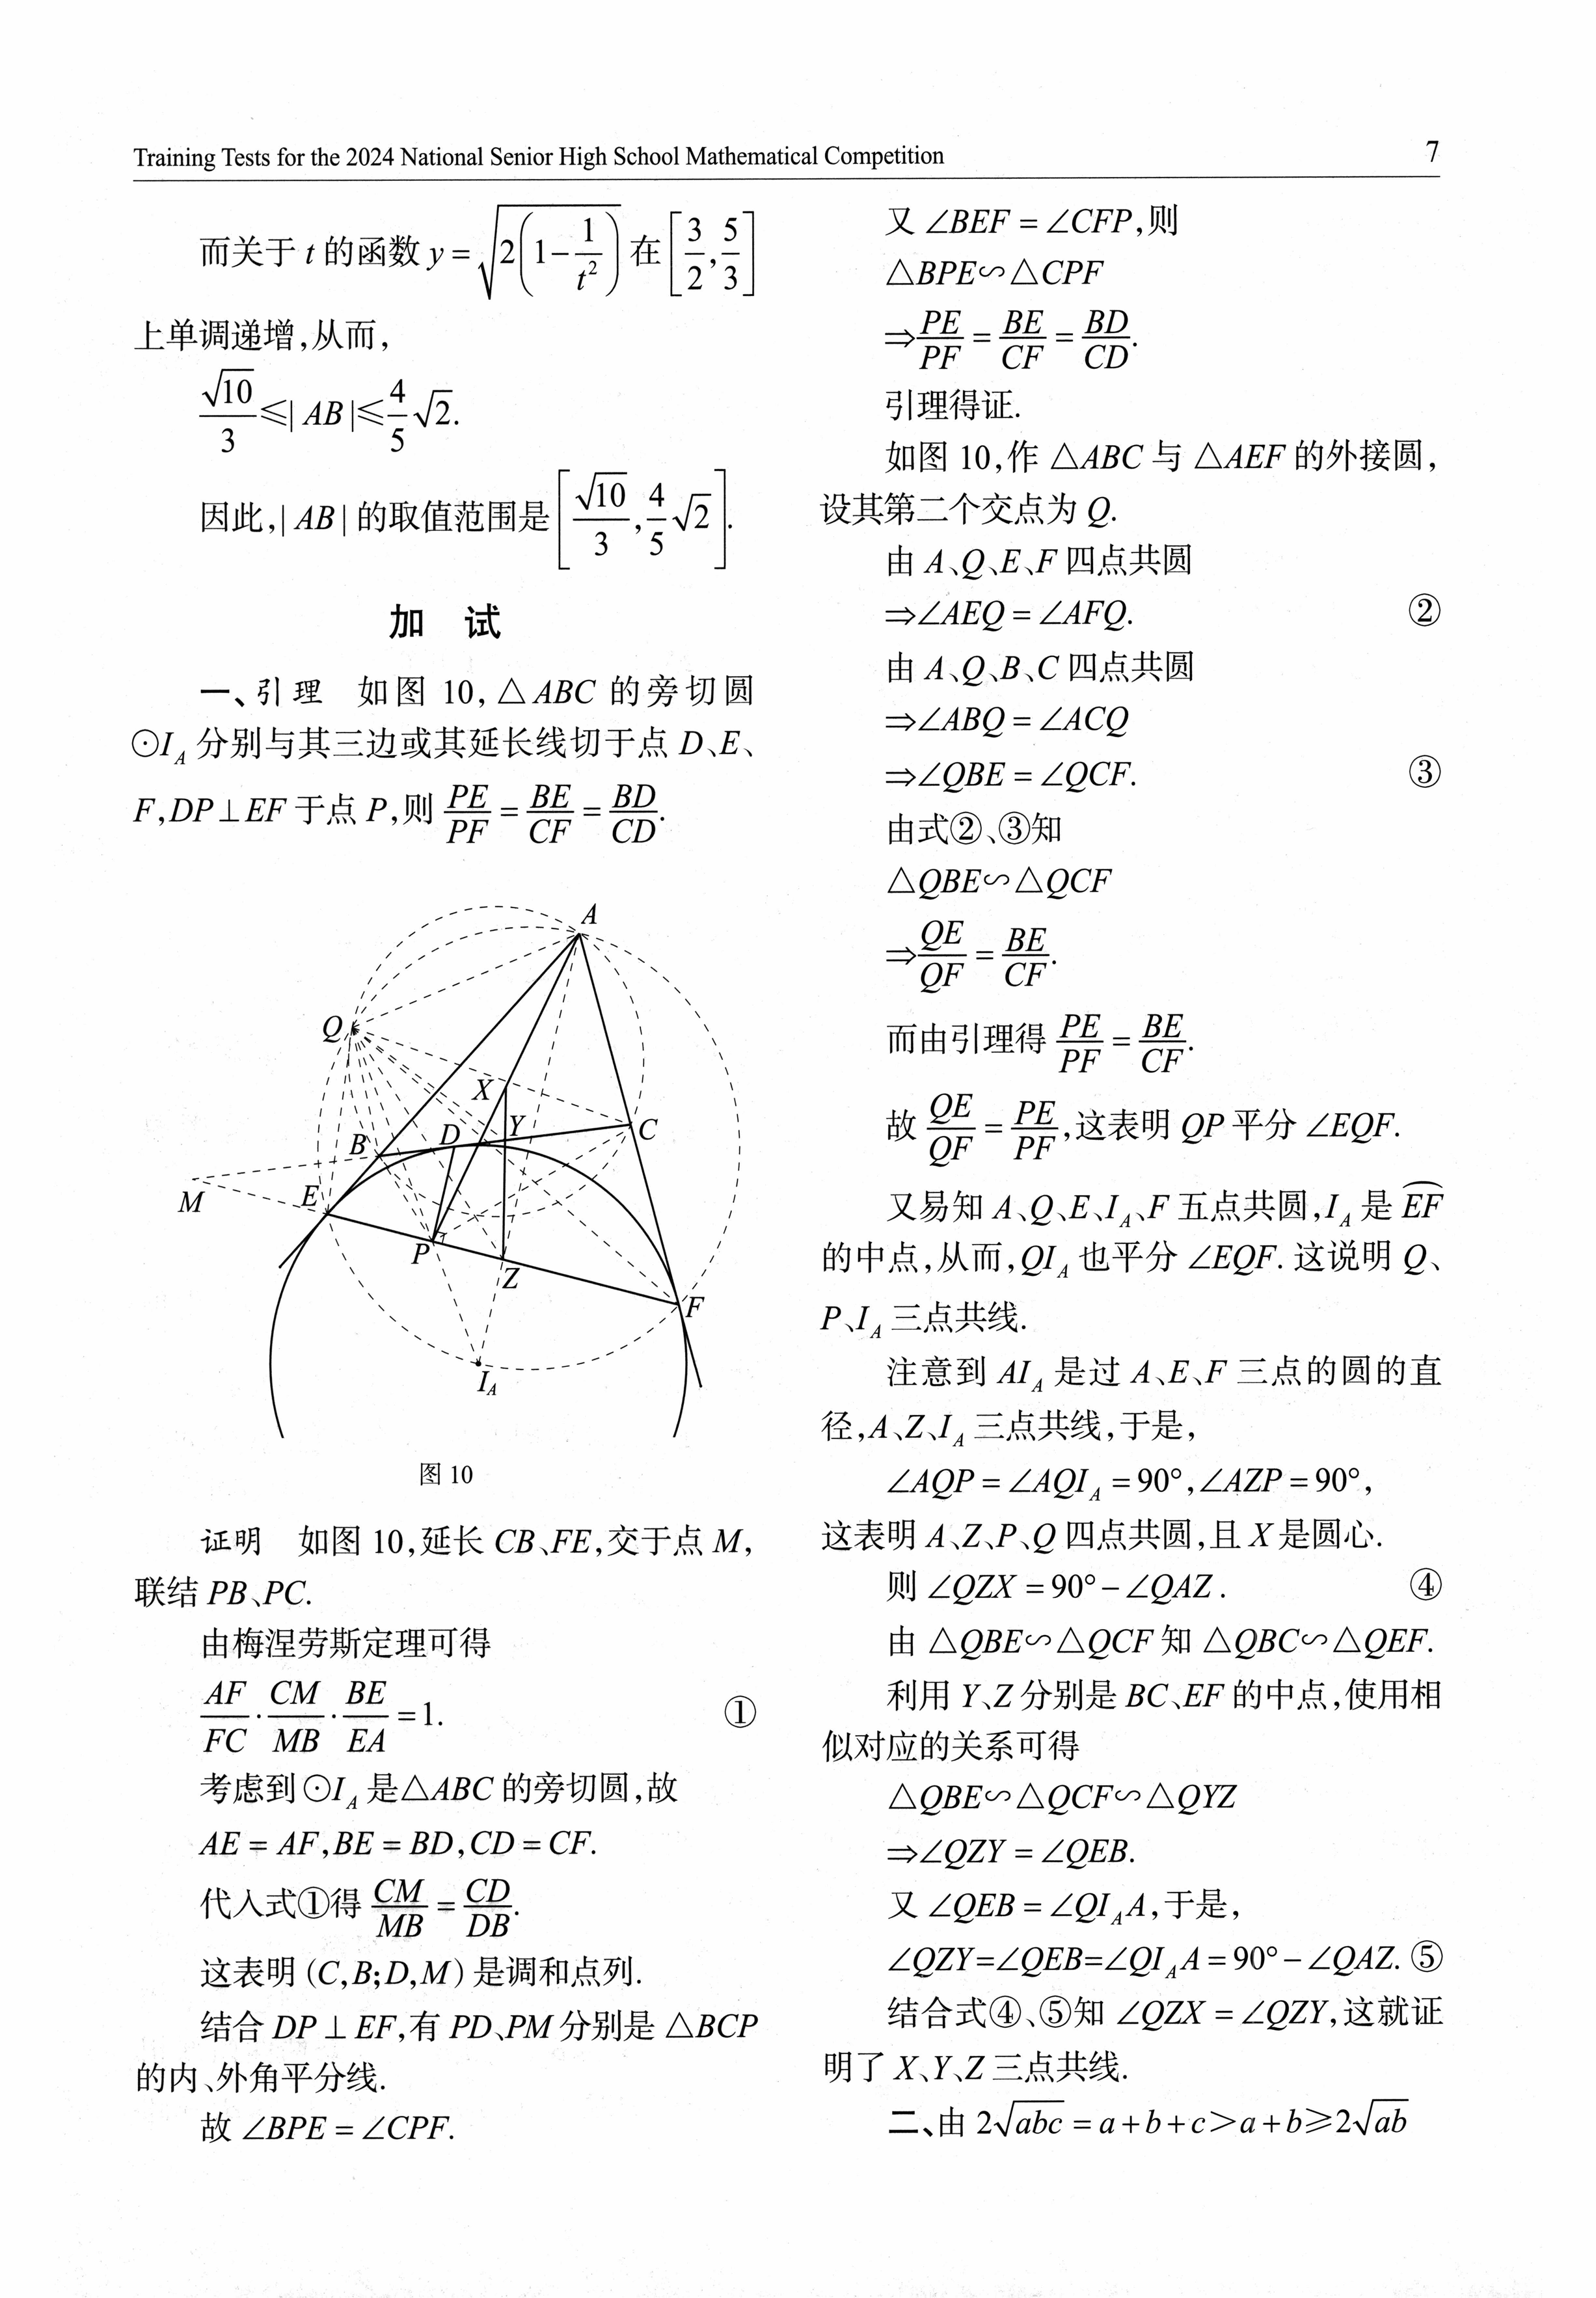 Training Tests for the 2024 National Senior High School Mathematical Competition 7
而关于 t 的函数 y = √(2(1-1/t²)) 在 [3/2, 5/3]
上单调递增,从而,
√10/3 ≤ | AB | ≤ 4/5 √2.
因此, | AB | 的取值范围是 [√10/3, 4/5 √2].
加 试
一、引理 如图 10, △ABC 的旁切圆
⊙I_A 分别与其三边或其延长线切于点 D、E、
F, DP⊥EF 于点 P, 则 PE/PF = BE/CF = BD/CD.
A
Q
X
B
D
Y
C
M
E
P
Z
F
I_A
图 10
证明 如图 10, 延长 CB、FE, 交于点 M,
联结 PB、PC.
由梅涅劳斯定理可得
AF/FC · CM/MB · BE/EA = 1. ①
考虑到 ⊙I_A 是 △ABC 的旁切圆, 故
AE = AF, BE = BD, CD = CF.
代入式①得 CM/MB = CD/DB.
这表明 (C,B;D,M) 是调和点列.
结合 DP⊥EF, 有 PD、PM 分别是 △BCP
的内、外角平分线.
故 ∠BPE = ∠CPF.
又 ∠BEF = ∠CFP, 则
△BPE∽△CPF
⇒ PE/PF = BE/CF = BD/CD.
引理得证.
如图 10, 作 △ABC 与 △AEF 的外接圆,
设其第二个交点为 Q.
由 A、Q、E、F 四点共圆
⇒∠AEQ = ∠AFQ. ②
由 A、Q、B、C 四点共圆
⇒∠ABQ = ∠ACQ
⇒∠QBE = ∠QCF. ③
由式②、③知
△QBE∽△QCF
⇒ QE/QF = BE/CF.
而由引理得 PE/PF = BE/CF.
故 QE/QF = PE/PF, 这表明 QP 平分 ∠EQF.
又易知 A、Q、E、I_A、F 五点共圆, I_A 是 ⌒EF
的中点, 从而, QI_A 也平分 ∠EQF. 这说明 Q、
P、I_A 三点共线.
注意到 AI_A 是过 A、E、F 三点的圆的直
径, A、Z、I_A 三点共线, 于是,
∠AQP = ∠AQI_A = 90°, ∠AZP = 90°,
这表明 A、Z、P、Q 四点共圆, 且 X 是圆心.
则 ∠QZX = 90° - ∠QAZ. ④
由 △QBE∽△QCF 知 △QBC∽△QEF.
利用 Y、Z 分别是 BC、EF 的中点, 使用相
似对应的关系可得
△QBE∽△QCF∽△QYZ
⇒∠QZY = ∠QEB.
又 ∠QEB = ∠QI_A A, 于是,
∠QZY=∠QEB=∠QI_A A = 90° - ∠QAZ. ⑤
结合式④、⑤知 ∠QZX = ∠QZY, 这就证
明了 X、Y、Z 三点共线.
二、由 2√abc = a+b+c>a+b≥2√ab